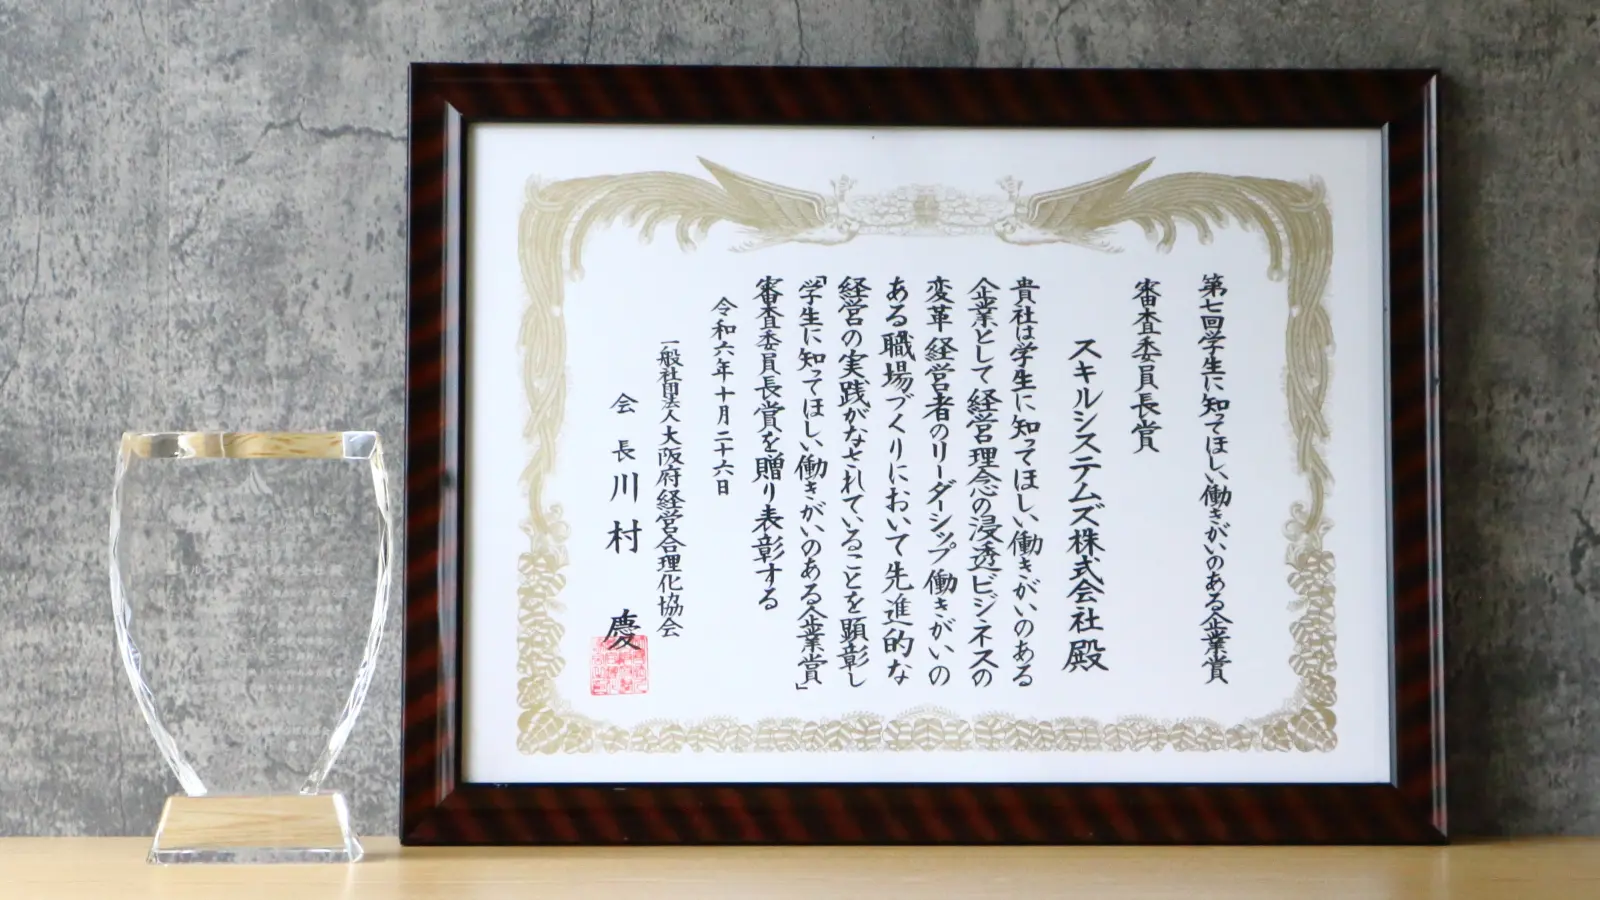 第七回学生に知ってほしい働きがいのある企業賞
審査委員長賞
スキルシステムズ株式会社殿
貴社は学生に知ってほしい働きがいのある
企業として経営理念の浸透ビジネスの
変革経営者のリーダーシップ働きがいの
ある職場づくりにおいて先進的な
経営の実践がなされていることを顕彰し
「学生に知ってほしい働きがいのある企業賞」
審査委員長賞を贈り表彰する
令和六年十月二十六日
一般社団法人大阪府経営合理化協会
会長川村慶